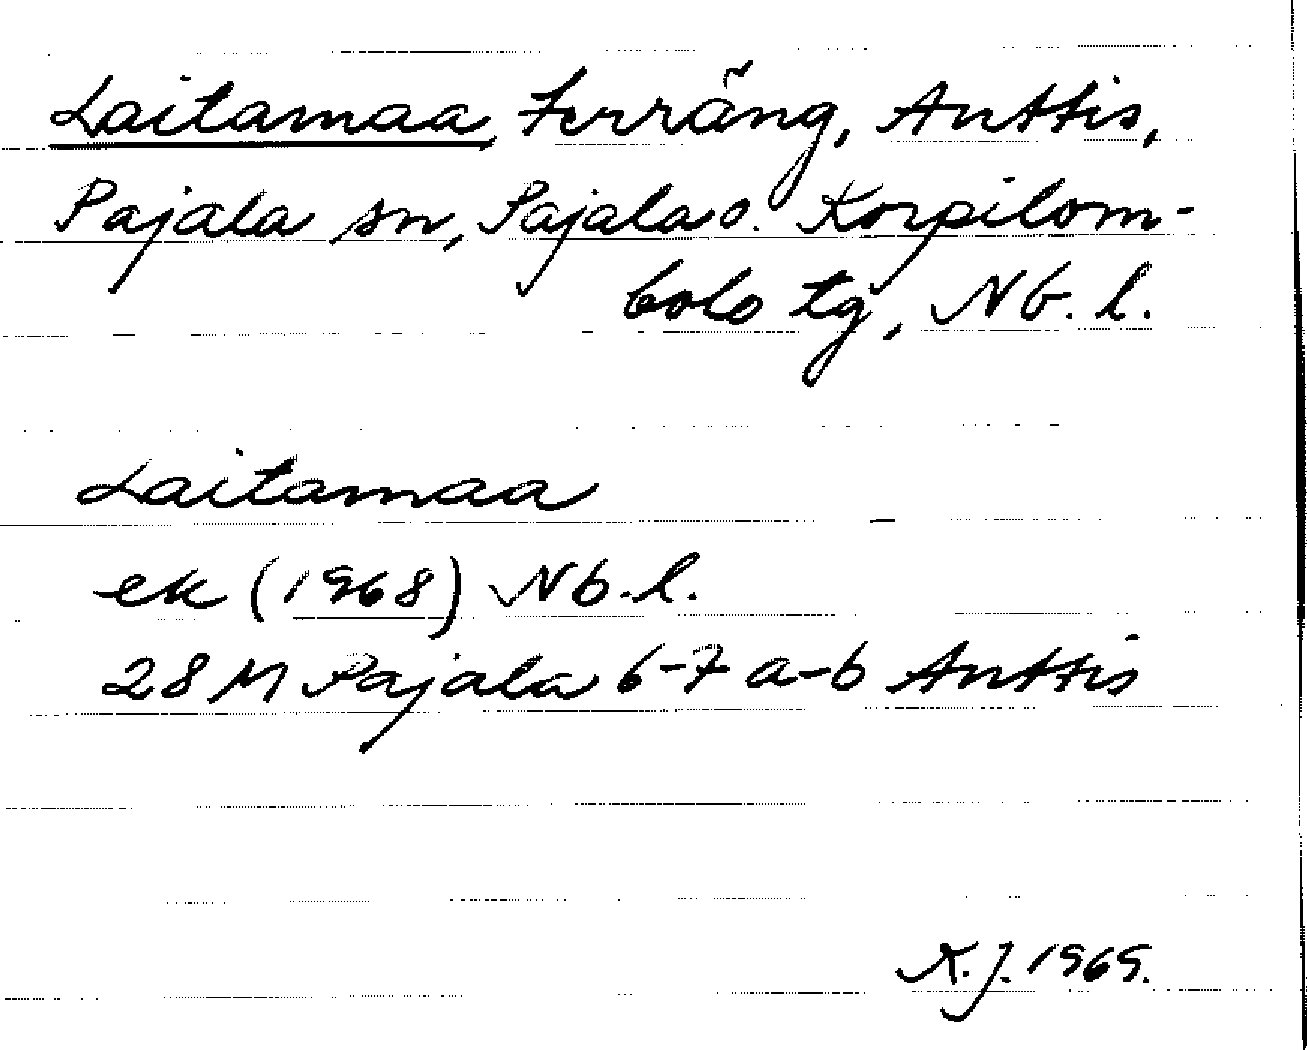 Laitamaa, terräng, Anttis,
Pajala sn, Pajala o. Korpilom-
bolo tg, Nb. l.
Laitamaa
ek (1968) Nb. l.
28 M Pajala 6-7 a-b Anttis
K.J. 1969.